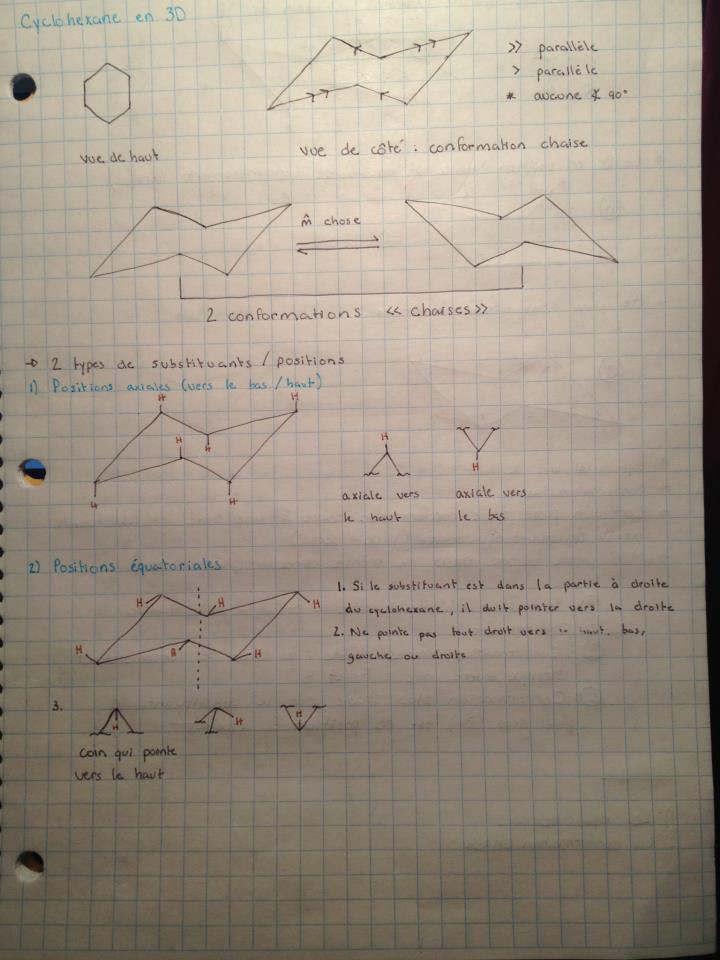 Cyclohexane en 3D
>> parallèle
> parallèle
* aucune ∡ 90°
vue de haut
vue de côté : conformation chaise
m̂ chose
2 conformations << chaises >>
→ 2 types de substituants / positions
1) Positions axiales (vers le bas / haut)
H H
H H
H H
H
H
axiale vers axiale vers
le haut le bas
2) Positions équatoriales
H H H
H H H
1. Si le substituant est dans la partie à droite
du cyclohexane, il doit pointer vers la droite
2. Ne pointe pas tout droit vers haut, bas,
gauche ou droite
3.
H H H
coin qui pointe
vers le haut